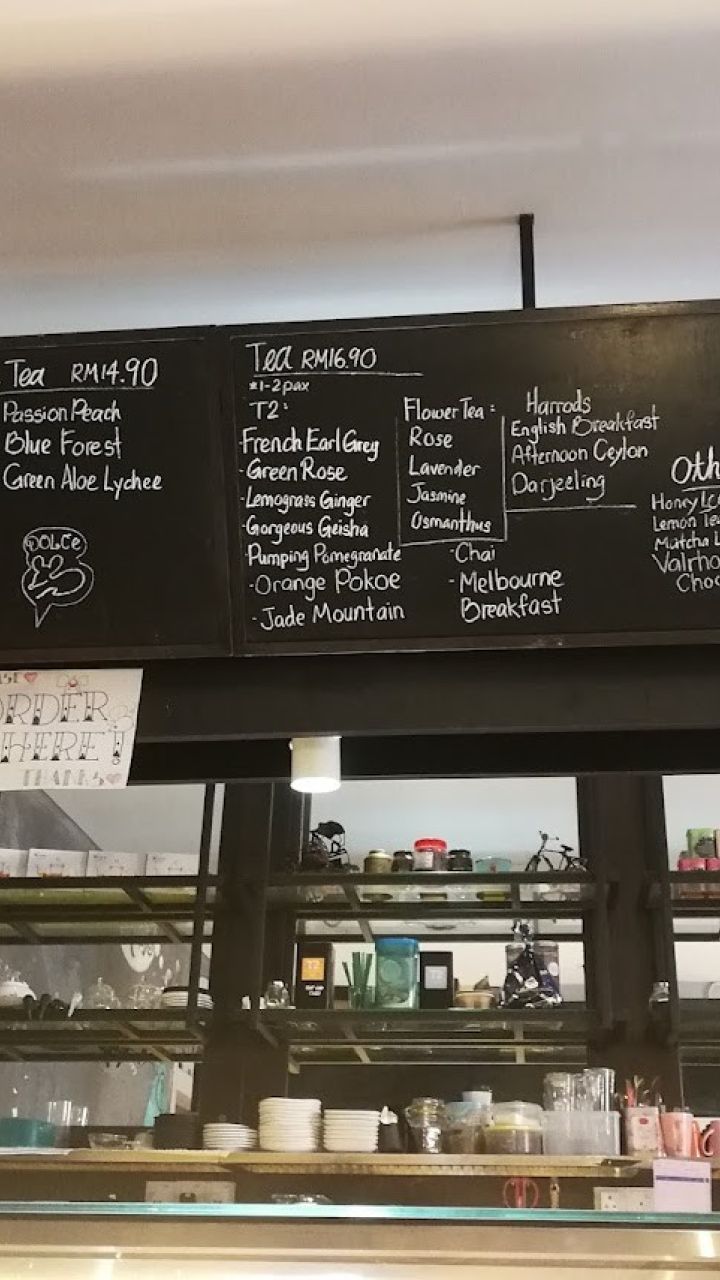 Tea RM14.90
Passion Peach
Blue Forest
Green Aloe Lychee
DOLCe
Tea RM16.90
*1-2pax
T2:
French Earl Grey
-Green Rose
-Lemograss Ginger
-Gorgeous Geisha
-Pumping Pomegranate
-Orange Pokoe
-Jade Mountain
Flower Tea:
Rose
Lavender
Jasmine
Osmanthus
-Chai
-Melbourne
Breakfast
Harrods
English Breakfast
Afternoon Ceylon
Darjeeling
Oth
Honey
Lemon Tea
Matcha L
Valrho
Choc
ORDER
HERE!
THANKS
T2